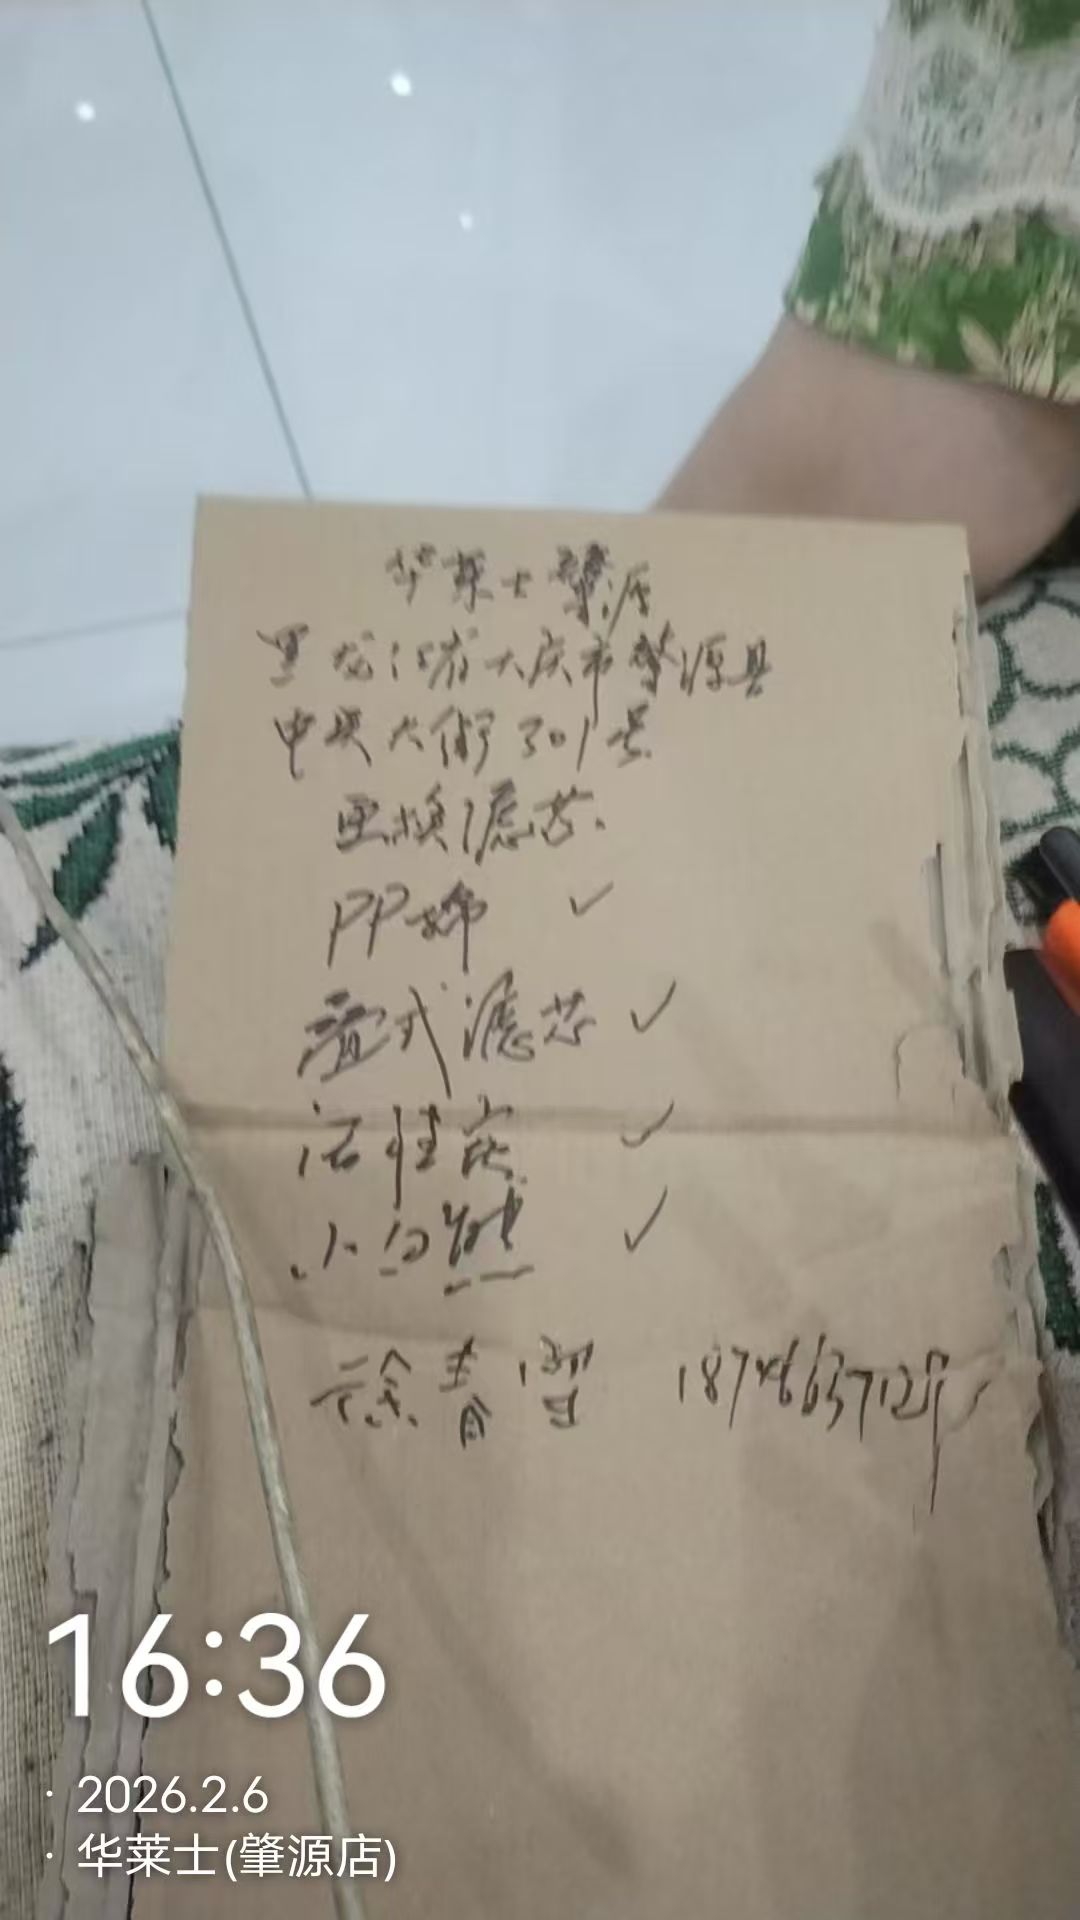 华莱士肇源
黑龙江省大庆市肇源县
中央大街301号
更换滤芯.
PP棉 ✓
叠式滤芯 ✓
活性炭 ✓
小白 ✓
徐春
16:36
· 2026.2.6
· 华莱士(肇源店)